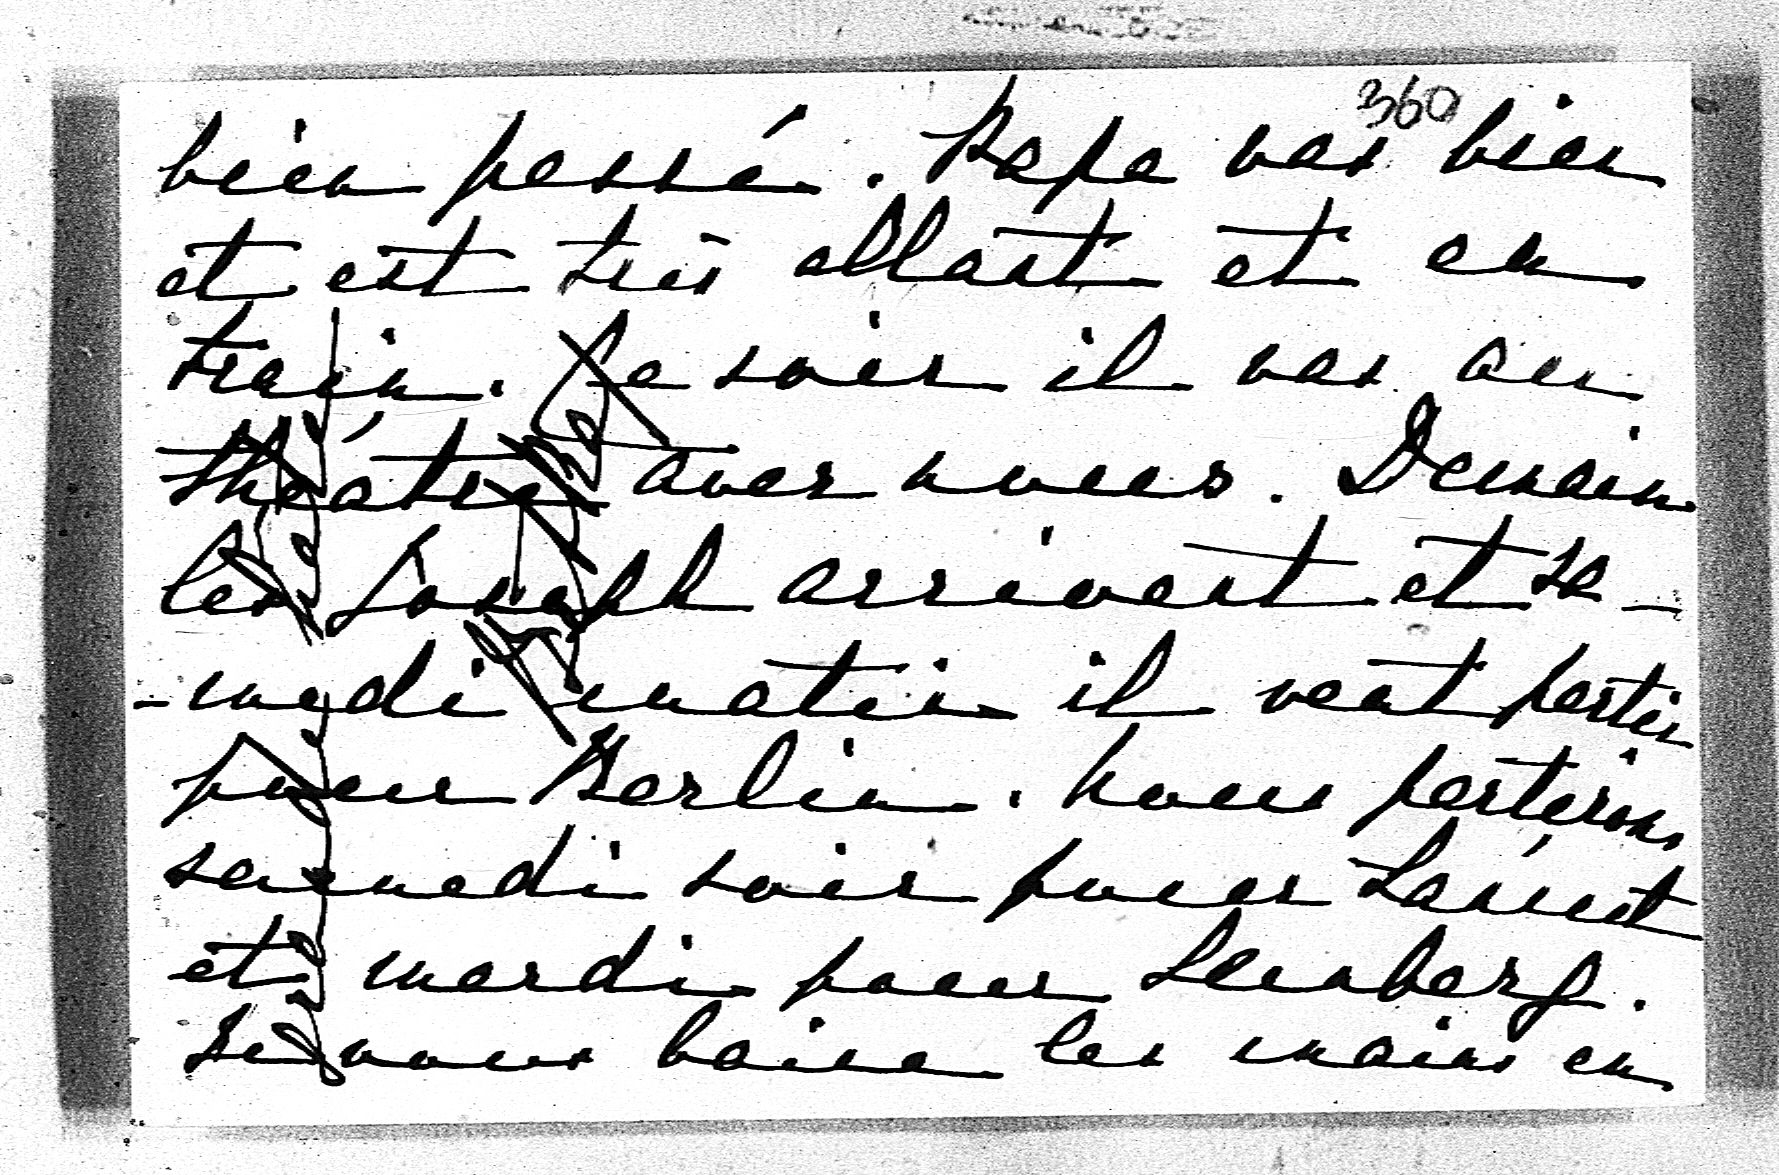 360
bien passé. Papa vas bien
et est très allant et en
train. Ce soir il vas au
théâtre avec nous. Demain
les Joseph arrivent et sa-
-medi matin il veut partir
pour Berlin. Nous partirons
samedi soir pour Łańcut
et mardi pour Lemberg.
Je vous baise les mains en